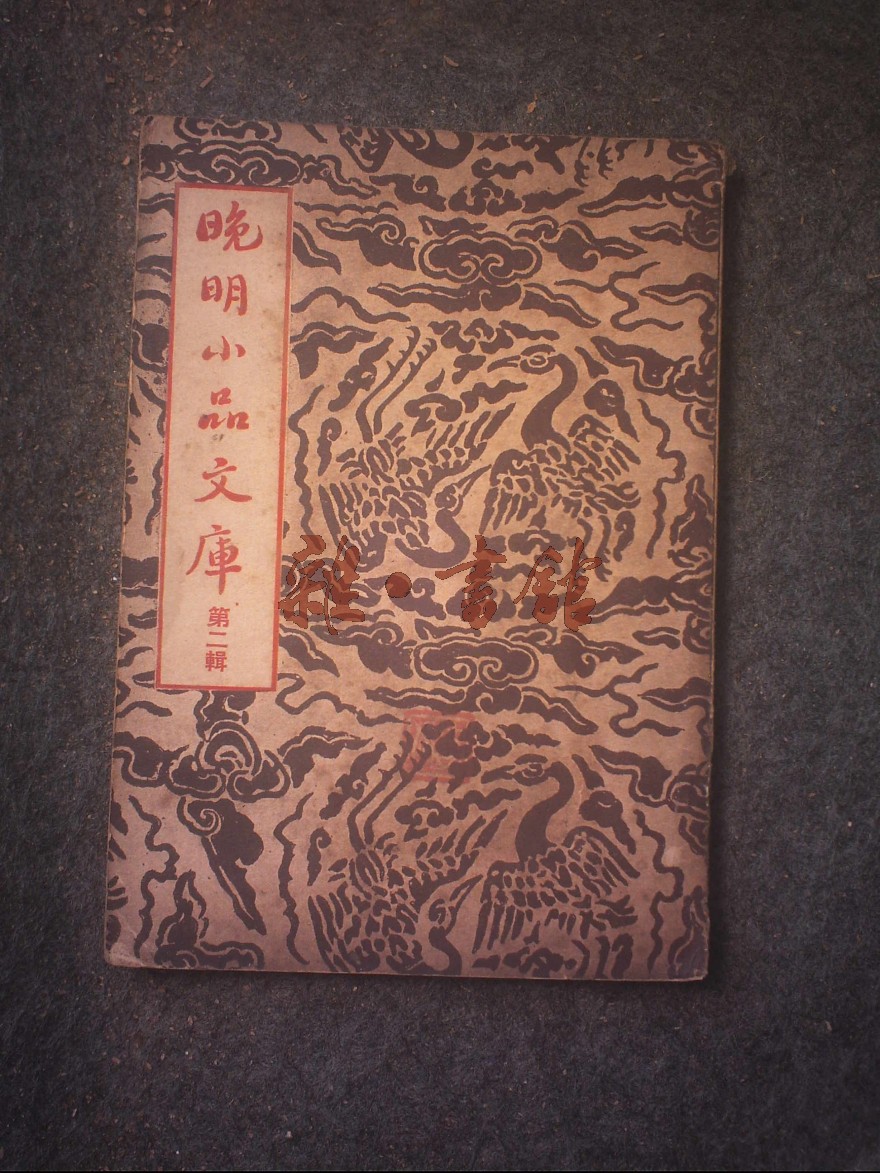 晚明小品文庫
第二輯
雜·書館